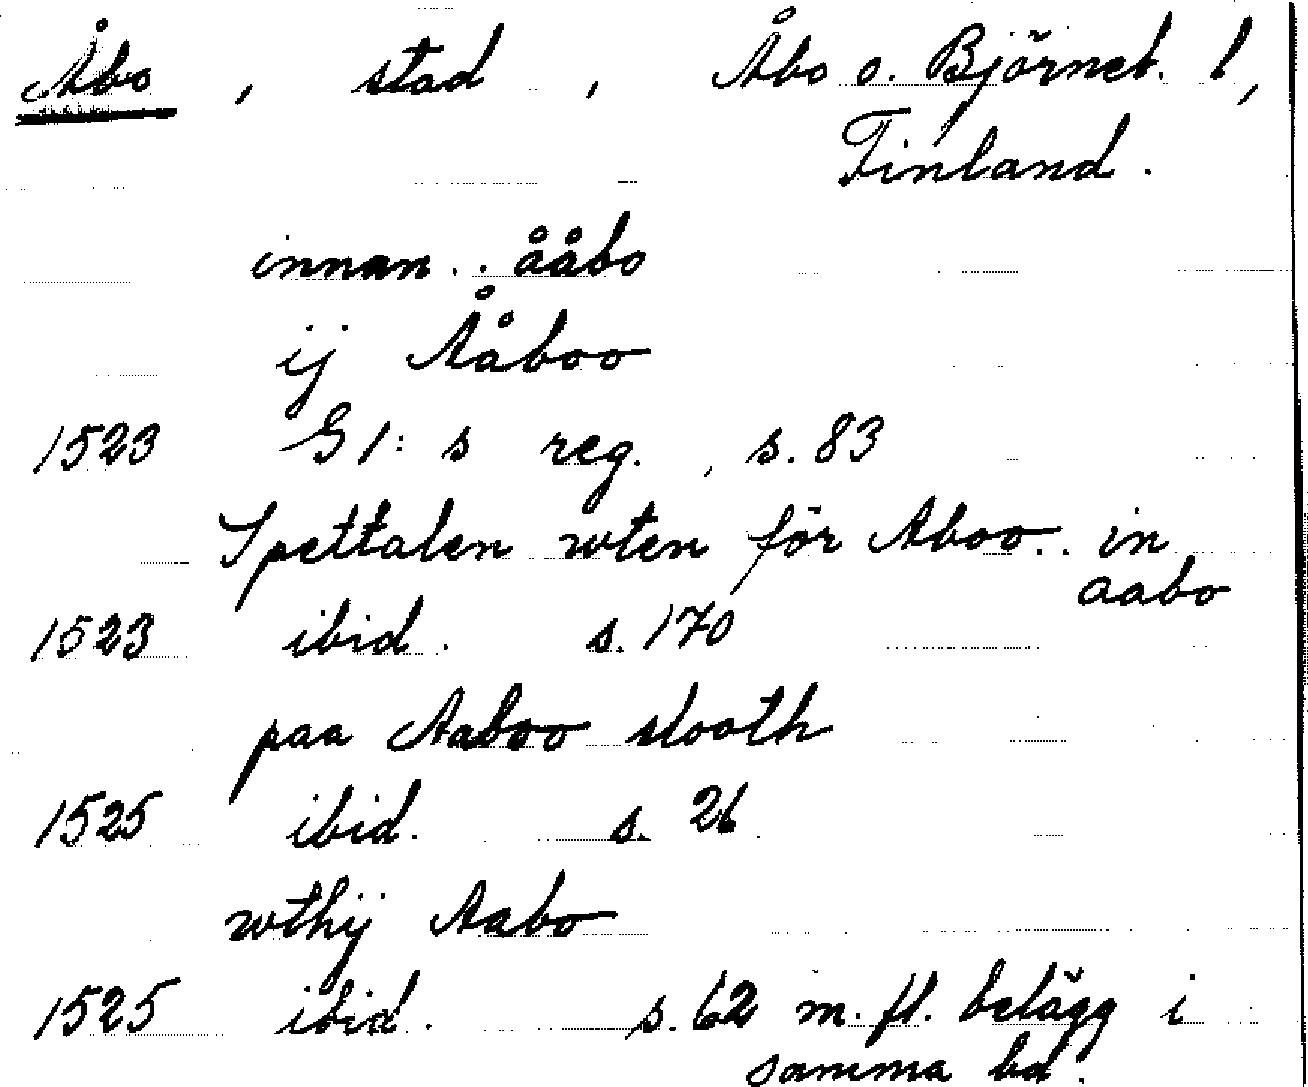 Åbo, stad, Åbo o. Björneb. l,
Finland.
innan .. ååbo
ij Ååboo
1523 G I:s reg., s. 83
Spettalen wten för Aboo .. in
aabo
1523 ibid. s. 170
paa Aaboo slooth
1525 ibid. s. 26
wthij Aabo
1525 ibid. s. 62 m. fl. belägg i
samma bd.